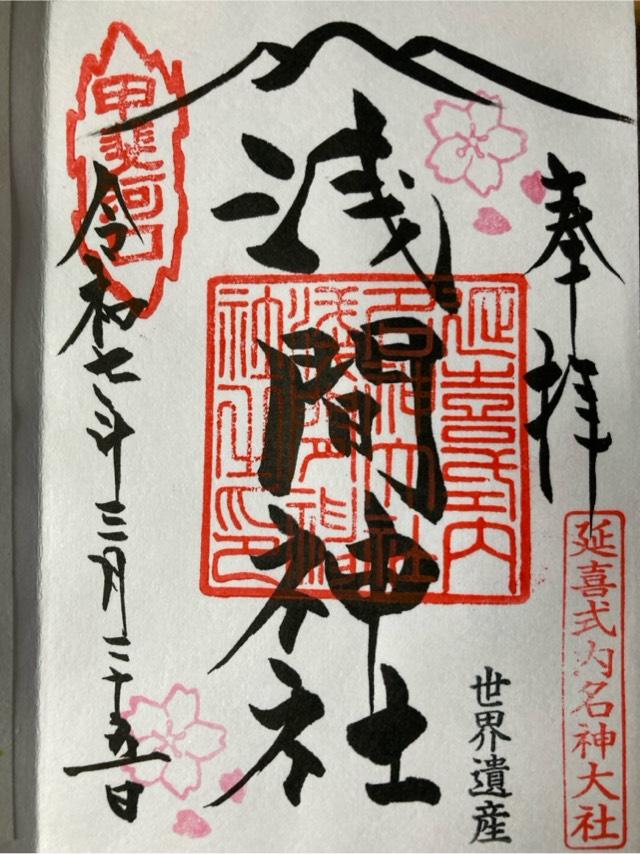 奉拝
延喜式内名神大社
世界遺産
浅間神社
延喜式内
名神大社
浅間神社
甲斐河口
令和七年三月二十五日